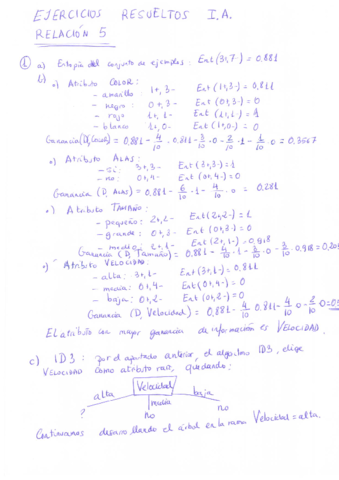 EJERCICIOS RESUELTOS I.A.
RELACIÓN 5
① a) Entropía del conjunto de ejemplos: Ent(3+,7-) = 0.881
b)
*) Atributo COLOR:
- amarillo: 1+, 3- Ent(1+,3-) = 0,811
- negro: 0+, 3- Ent(0+,3-) = 0
- rojo 1+, 1- Ent(1+,1-) = 1
- blanco 1+, 0- Ent(1+,0-) = 0
Ganancia(D, Color) = 0,881 - 4/10 · 0.811 - 3/10 · 0 - 2/10 · 1 - 1/10 · 0 = 0.3567
*) Atributo ALAS:
- sí: 3+, 3- Ent(3+,3-) = 1
- no: 0+, 4- Ent(0+,4-) = 0
Ganancia (D, ALAS) = 0,881 - 6/10 · 1 - 4/10 · 0 = 0.281
*) Atributo TAMAÑO:
- pequeño: 2+, 2- Ent(2+,2-) = 1
- grande: 0+, 3- Ent(0+,3-) = 0
- medio: 1+, 2- Ent(1+,2-) = 0,918
Ganancia (D, Tamaño) = 0,881 - 4/10 · 1 - 3/10 · 0 - 3/10 · 0,918 =
*) Atributo VELOCIDAD:
- alta: 3+, 1- Ent(3+,1-) = 0,811
- media: 0+, 4- Ent(0+,4-) = 0
- baja: 0+, 2- Ent(0+,2-) = 0
Ganancia (D, Velocidad) = 0,881 - 4/10 · 0.811 - 4/10 · 0 - 2/10 · 0 =
El atributo con mayor ganancia de información es VELOCIDAD.
c) ID3: por el apartado anterior, el algoritmo ID3, elige
VELOCIDAD como atributo raíz, quedando:
Velocidad
alta media baja
? no no
Continuamos desarrollando el árbol en la rama Velocidad = alta.